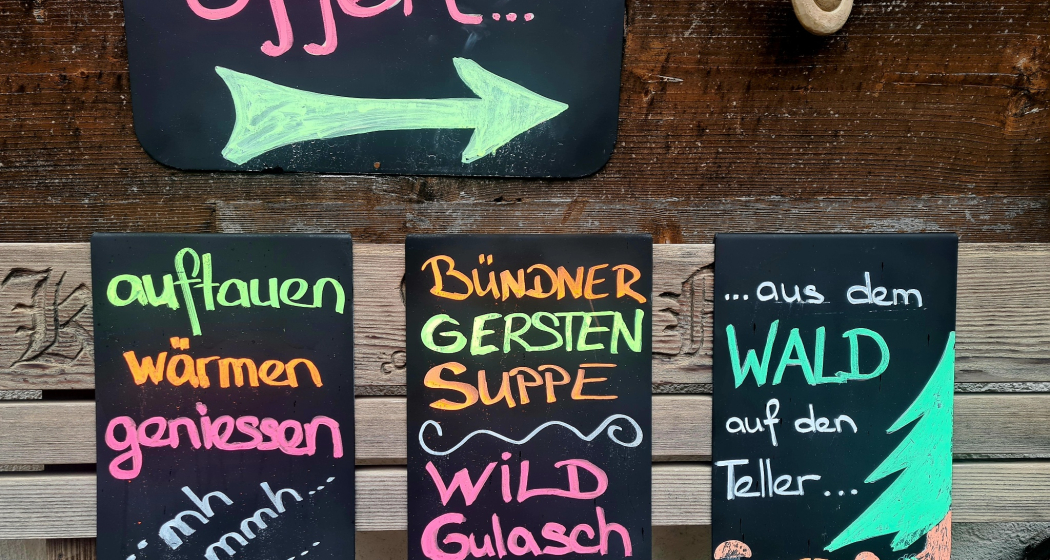 offen...
auftauen
wärmen
geniessen
...mh
mmh...
BÜNDNER
GERSTEN
SUPPE
WILD
Gulasch
...aus dem
WALD
auf den
Teller...